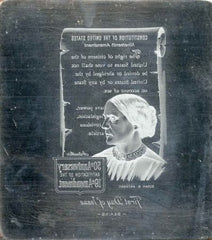 CONSTITUTION OF THE UNITED STATES
Nineteenth Amendment
The right of citizens of the
United States to vote shall not
be denied or abridged by the
United States or by any State
on account of sex.
have power,
legislation,
provisions
article.
SUSAN B. ANTHONY
50th Anniversary
RATIFICATION OF THE
19th Amendment
First Day of Issue